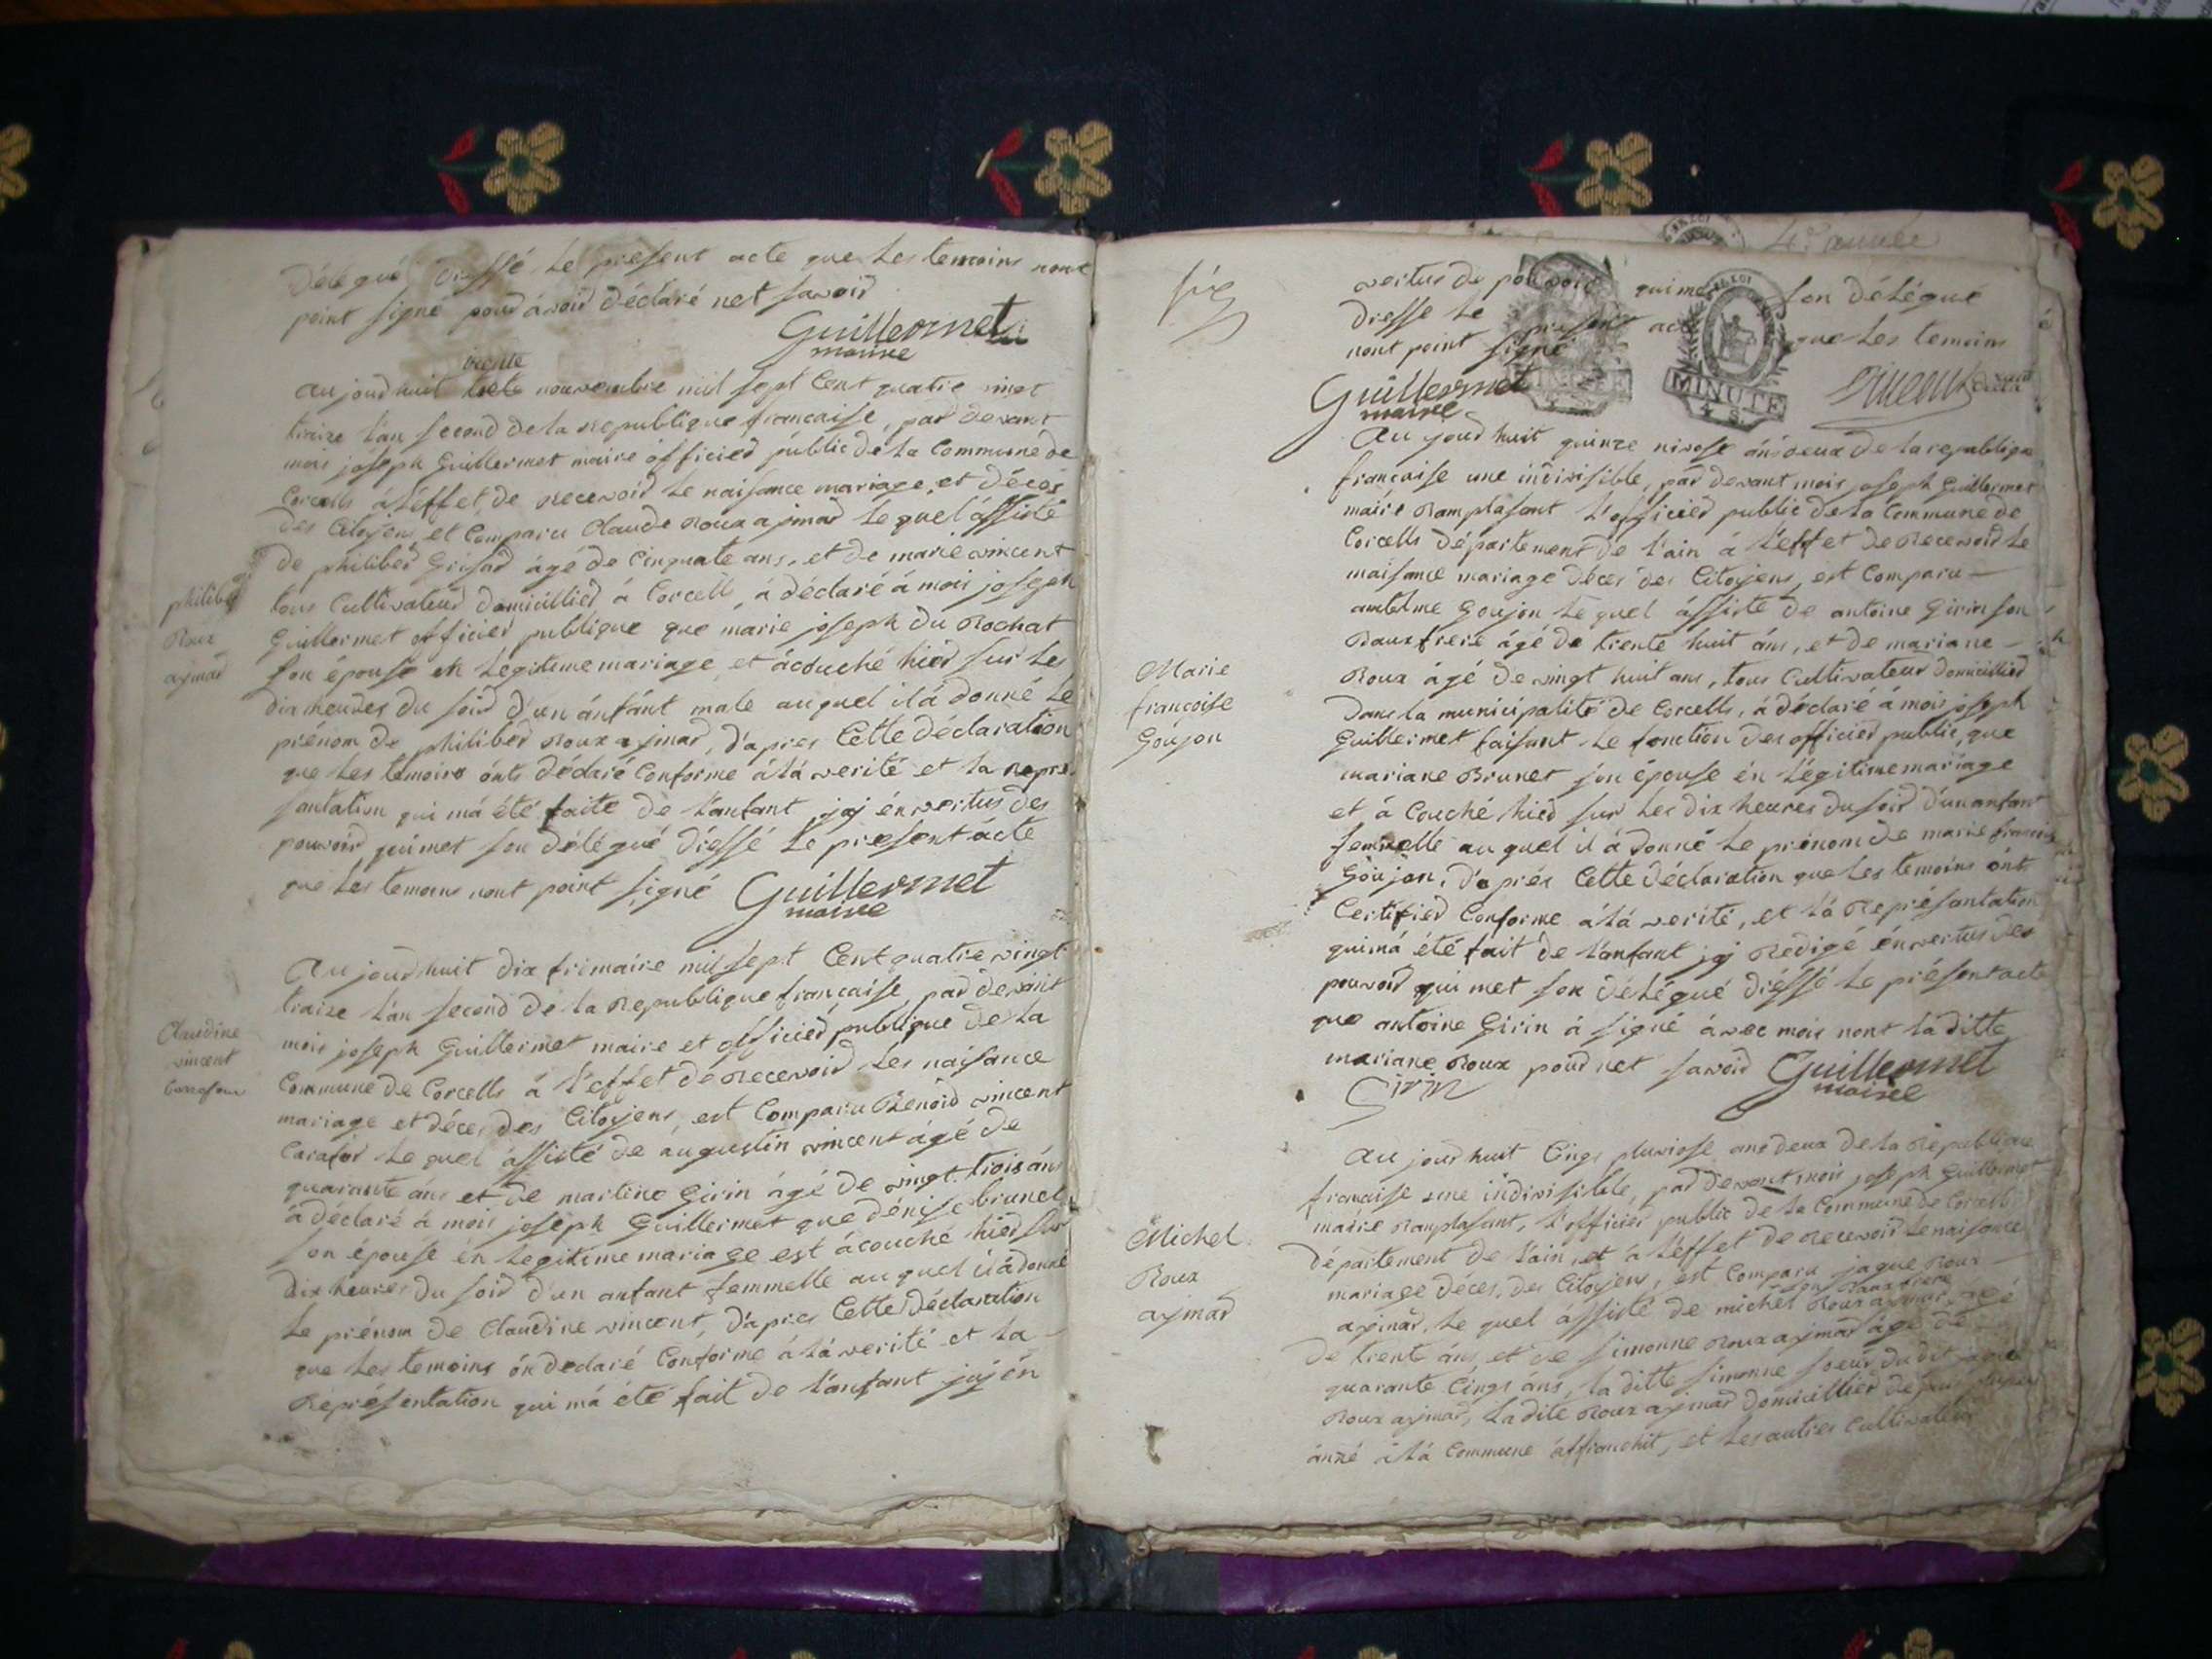 Délegué dressé le present acte que les temoins nont
point signé pour ávoir déclaré net savoir
Guillermet
maire
trente
aujourdhuit nouvembre mil sept Cent quatre vinet
traize l'an second de la republique francaise, par devant
mois joseph Guillermet maire officier public de la Commune de
Corcells á l'effet de recevoir le naisance mariage, et déces
des Citoyens, et Comparu Claude Roux aymar le quel ássisté
de philiber Grisar ágé de Cinquate ans, et de marie vincent
tous Cultivateur domicillier á Corcells, á déclaré á mois joseph
philiber
Roux
aymar
Guillermet officier publique que marie joseph du Rochat
son épouse en legitime mariage, et ácouché hier sur les
dix heures du soir d'un ánfánt male auquel il á donné le
prénom de philiber Roux aymar, d'apres Cette déclaration
que les temoins ónts déclaré Conforme á lá verité et la repré
santation qui má été faite de l'anfant jaj én vertus des
pouvoir qui met son délégué dréssé le present ácte
que les temoins nont point signé Guillermet
maire
Au jourdhuit dix frimaire mil sept Cent quatre vingt
traize l'án second de la Republique francaise, par devant
mois joseph Guillermet maire et officier publique de la
Claudine
vincent
Commune de Corcells á l'effet de recevoir les naisance
mariage et déces des Citoyens, est Comparu Benoid vincent
le quel ássisté de augustin vincent ágé de
quarante áns et de martine Girin ágé de vingt trois áns
á déclaré á mois joseph Guillermet que dénise brunet
son épouse én legitime mariage est ácouché hier sur
dix heures du soir d'un anfant femmelle auquel il á donné
le prénom de Claudine vincent, d'apres Cette déclaration
que les temoins ón declaré Conforme á lá verité et la
Représentation qui má été fait de l'anfant jaj én
4e année
vertus de pouvoir qui met son délégué
dresse le present acte que les temoins
nont point signé
MINUTE
4 S.
Guillermet
maire
Au jourdhuit quinze nivose án deux de la republique
francaise une indivisible, par devant mois joseph Guillermet
maire ramplasant l'officier public de la Commune de
Corcells département de l'ain á l'effet de recevoir le
naisance mariage déces des Citoyens, est Comparu
antelme Goujon le quel ássisté de antoine Girin son
Baux frere ágé de trente huit áns, et de mariane
Roux ágé de vingt huit ans, tous Cultivateur domicillier
Marie
francoise
Goujon
dans la municipalité de Corcells, á déclaré á mois joseph
Guillermet faisant le fonction des officier public, que
mariane Brunet son épouse én légitime mariage
et á Couché hier sur les dix heures du soir d'un anfant
femmelle auquel il á donné le prénom de marie francoise
Goujon, d'aprés Cette déclaration que les temoins ónt
Certifier Conforme á lá verité, et lá Représantation
qui má été fait de l'anfant jaj Redigé én vertus des
pouvoir qui met son délégué dréssé le présent acte
que antoine Girin á signé ávec mois nont la ditte
mariane Roux pour net savoir Guillermet
Girin
maire
Au jourdhuit Cinqs pluviose ans deux de la Republique
francaise une indivisible, par devant mois joseph Guillermet
maire ramplasant, l'officier public de la Commune de Corcells
département de l'ain, et á l'éffet de recevoir le naisance
mariage déces, des Citoyens, est Comparu jaque Roux
Michel
Roux
aymar
son Baux frere
aymar, le quel ássisté de michel Roux aymar ágé
de trente áns, et de simonne Roux aymar ágé de
quarante Cinqs áns, la ditte simonne soeur du dit jaque
Roux aymar, la dite Roux aymar domicillier depuis
ánné á lá Commune áffranchit, et les autres Cultivateur